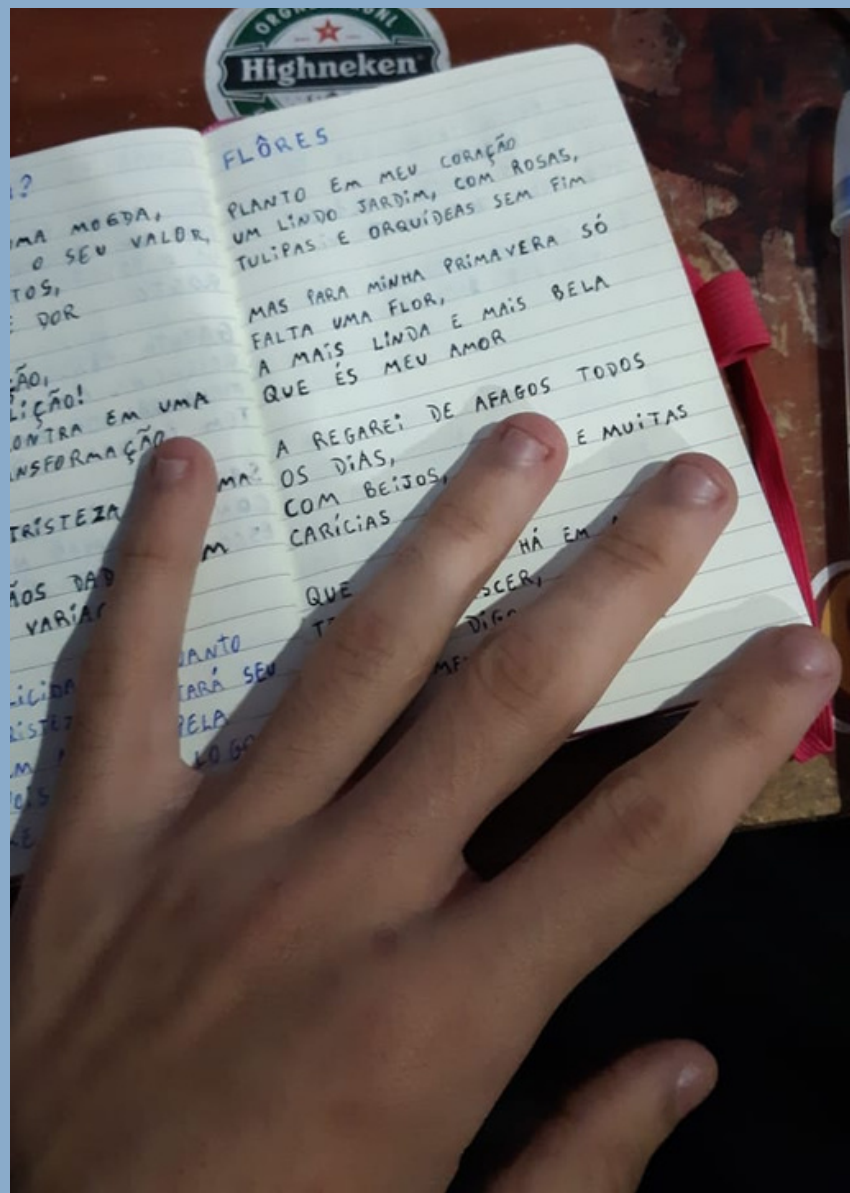 ORGA
Highneken
?
MA MOEDA,
O SEU VALOR,
TOS,
E DOR
ÃO,
LIÇÃO!
ONTRA EM UMA
NSFORMAÇÃO
MAS
TRISTEZA
M
ÃOS DAD
VARIA
QUANTO
LICIDA TARÁ SEU
RISTEZ PELA
M LOGO
FLÔRES
PLANTO EM MEU CORAÇÃO
UM LINDO JARDIM, COM ROSAS,
TULIPAS E ORQUÍDEAS SEM FIM
MAS PARA MINHA PRIMAVERA SÓ
FALTA UMA FLOR,
A MAIS LINDA E MAIS BELA
QUE ÉS MEU AMOR
A REGAREI DE AFAGOS TODOS
OS DIAS,
COM BEIJOS, E MUITAS
CARÍCIAS
QUE HÁ EM
SCER,
DIGO
ME